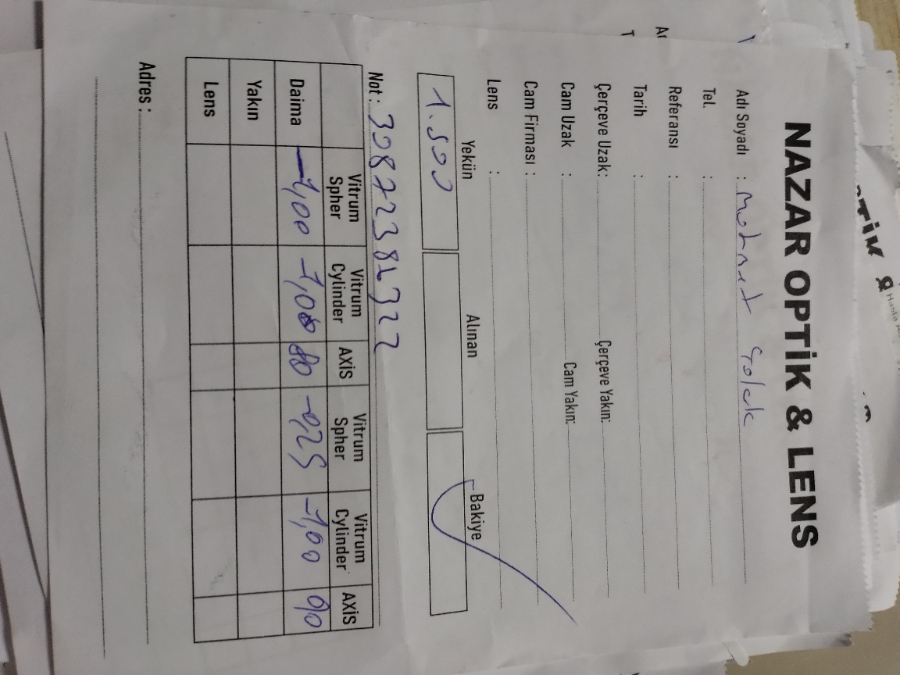 NAZAR OPTİK & LENS
Adı Soyadı : Mehmet Çolak
Tel. :
Referansı :
Tarih :
Çerçeve Uzak: Çerçeve Yakın:
Cam Uzak : Cam Yakın:
Cam Firması :
Lens :
Yekün Alınan Bakiye
1.500
Not : 30872382322
Vitrum Spher Vitrum Cylinder AXİS Vitrum Spher Vitrum Cylinder AXİS
Daima -1,00 -1,00 80 -0,25 -1,00 90
Yakın
Lens
Adres :